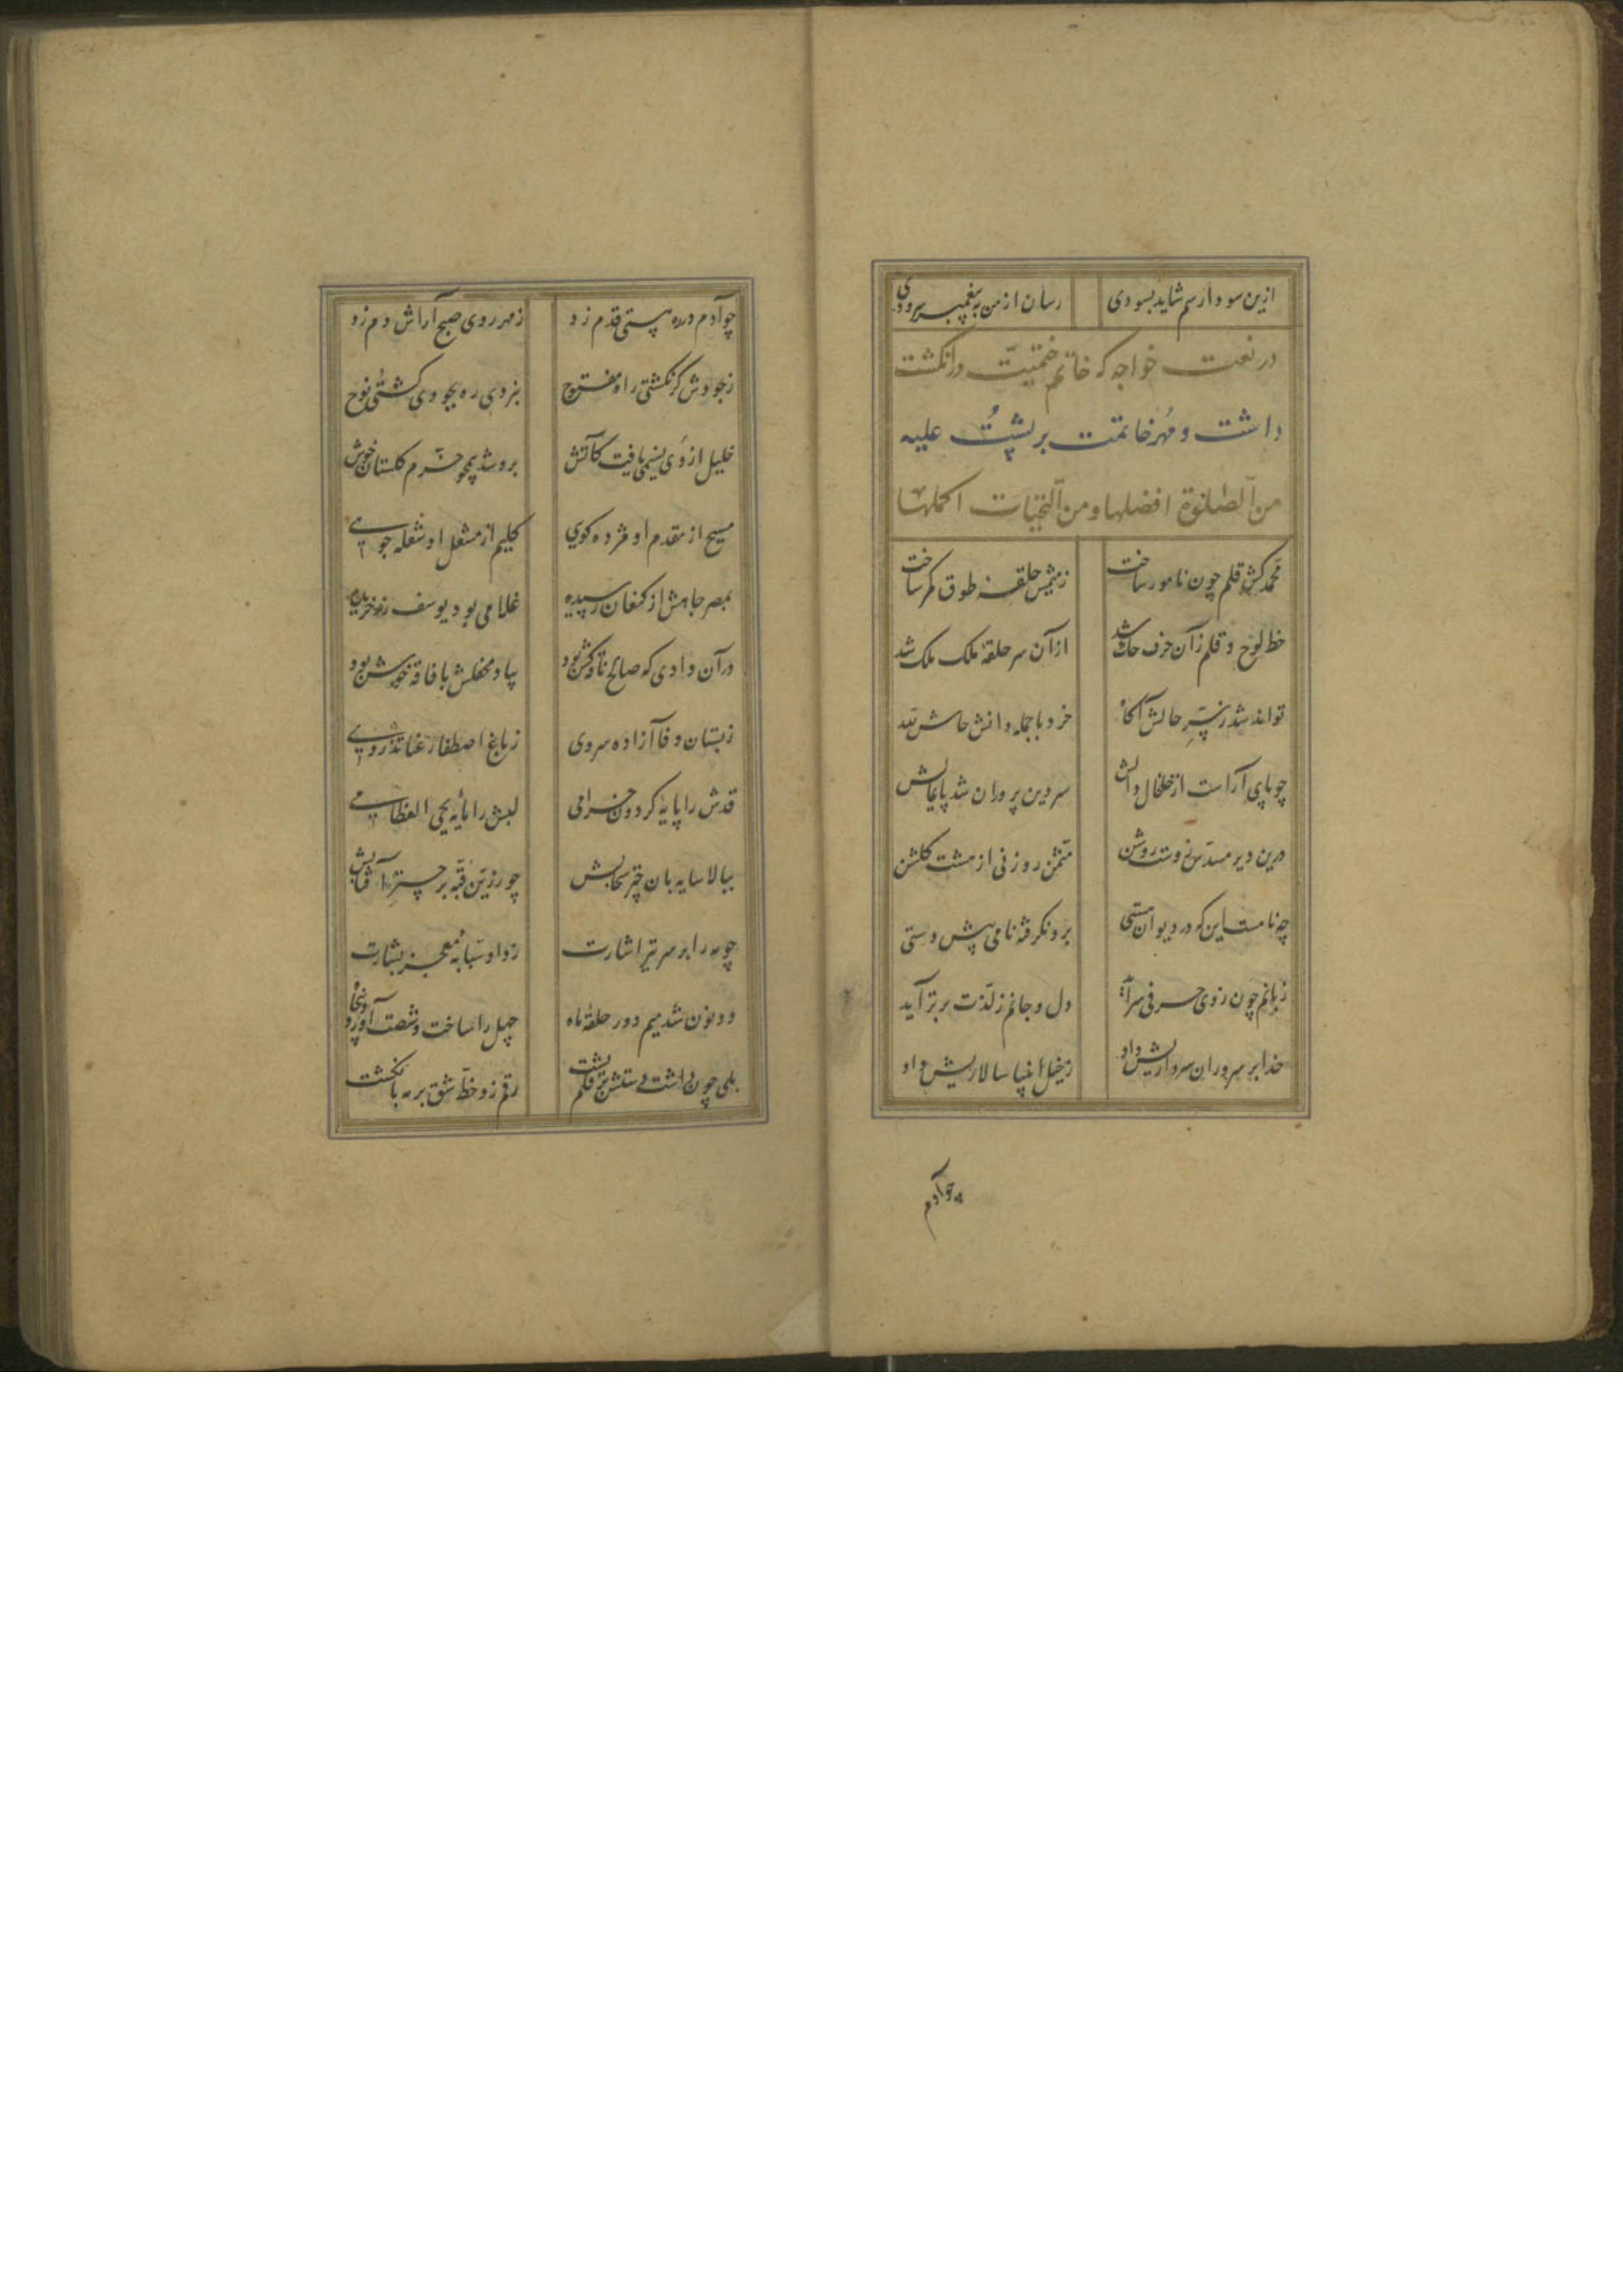 ازین سودا رسم شاید بسودی رسان از من به پیغمبر درودی
در نعت خواجه که خاتم ختمیت در انکشت
داشت و مهر خاتمت بر پشت علیه
من الصلوة افضلها و من التحیات اکملها
محمد کش قلم چون نامور ساخت ز میمش حلقه طوق کمر ساخت
خط لوح و قلم زان حرف حک شد ازان سر حلقه ملک ملک شد
تواند شد ز سر حالش آکاه خرد با جمله دانش حاش لله
چو پای آراست از خلخال دالش سر دین پروران شد پایمالش
درین دیر مسدس زوست روشن مثمن روزنی از هشت کلشن
چه نامست این که در دیوان هستی برو نکرفته نامی پیش دستی
زبانم چون ز وی حرفی سراید دل و جانم ز لذت بر تر آید
خدا بر سروران سرداریش داد ز خیل انبیا سالاریش داد
چو آدم
چو آدم در ره هستی قدم زد ز مهر روی صبح آراش دم زد
ز جودش کر نکشتی راه مفتوح بجودی ره نبردی کشتی نوح
خلیل از وی نسیمی یافت کآتش برو شد همچو خرم کلستان خوش
مسیح از مقدم او مژده کوی کلیم از مشعل او شعله جویی
بمصر جاهش از کنعان رسیده غلامی بود یوسف زر خریده
در آن وادی که صالح ناقه کش بود بیاد محفلش با فاقه خوش بود
ز بستان وفا آزاده سروی ز باغ اصطفا رعنا تذروی
قدش را پایه کردون خرامی لبش را مایه یحیی العظامی
ببالا سایه بان چتر سحابش چو زرین قبه بر چتر آفتابش
چو مه را بر سر تیر اشارت زد از سبابه معجز بشارت
دو نون شد میم دور حلقه ماه چهل را ساخت شصت او در دو پنجاه
بلی چون داشت دستش بر قلم پشت رقم زد خط شق بر مه بانکشت